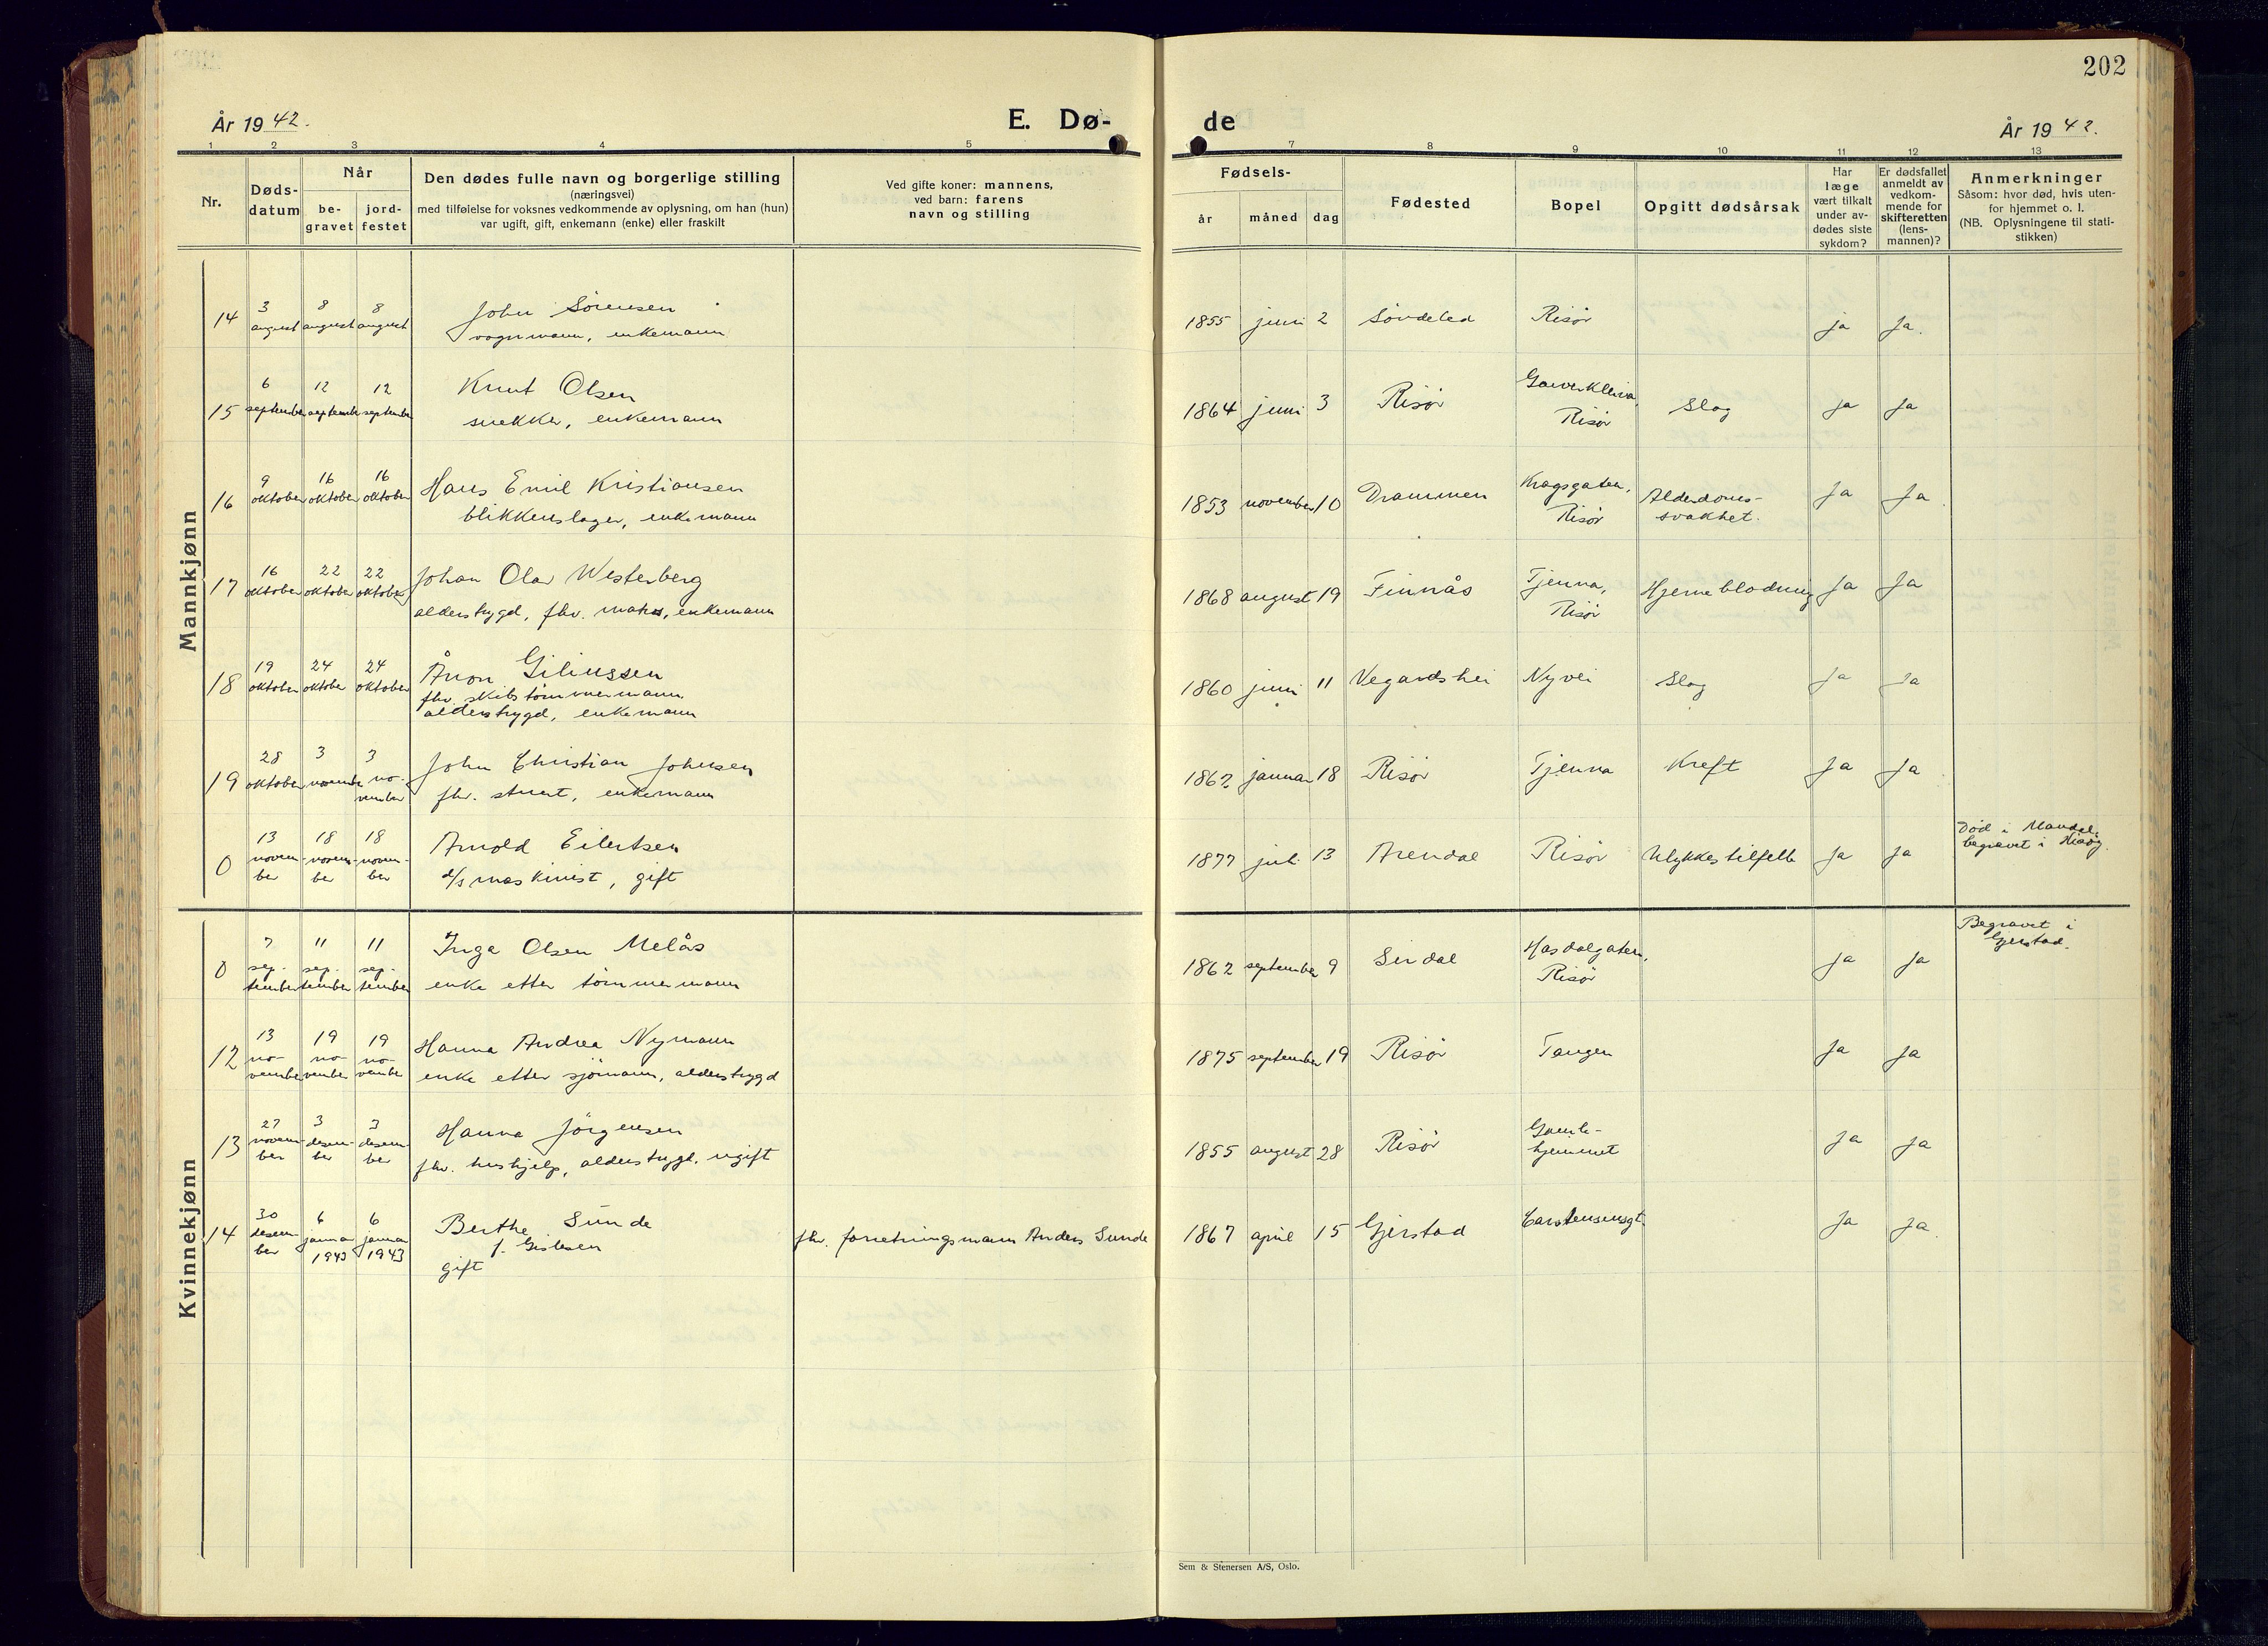 202
År 1942.
E. Dø-
de
År 1942.
1 2 3 4 5
7 8 9 10 11 12 13
Nr.
Døds-
datum
Når
be-
gravet
jord-
festet
Den dødes fulle navn og borgerlige stilling
(næringsvei)
med tilføielse for voksnes vedkommende av oplysning, om han (hun)
var ugift, gift, enkemann (enke) eller fraskilt
Ved gifte koner: mannens,
ved barn: farens
navn og stilling
Fødsels-
år
måned
dag
Fødested
Bopel
Opgitt dødsårsak
Har
læge
vært tilkalt
under av-
dødes siste
sykdom?
Er dødsfallet
anmeldt av
vedkom-
mende for
skifteretten
(lens-
mannen)?
Anmerkninger
Såsom: hvor død, hvis uten-
for hjemmet o. l.
(NB. Oplysningene til stati-
stikken)
Mannkjønn
14
3
august
8
august
8
august
John Sörensen
vognmann, enkemann
1855 juni 2
Söndeled
Risör
ja
Ja.
15
6
september
12
september
12
september
Knut Olsen
snekker, enkemann
1864 juni 3
Risör
Risör
Slag
ja
Ja
16
9
oktober
16
oktober
16
oktober
Hans Emil Kristiansen
blikkenslager, enkemann
1853 november 10
Drammen
Kragsgaten,
Risör
Alderdoms-
svakhet.
Ja
Ja
17
16
oktober
22
oktober
22
oktober
Johan Olav Westerberg
alderstrygd, fhv. matros, enkemann
1868 august 19
Finnås
Tjenna,
Risör
Hjerneblödning
Ja
Ja
18
19
oktober
24
oktober
24
oktober
Åron Giliussen
fhv. skibstömmermann
alderstrygd, enkemann
1860 juni 11
Vegardshei
Nyvei
Slag
Ja
Ja
19
28
oktober
3
november
3
no-
vember
John Christian Johnsen
fhv. stuert, enkemann
1862 januar 18
Risör
Tjenna
Kreft
Ja
Ja
0
13
novem-
ber
18
novem-
ber
18
novem-
ber
Arnold Eilertsen
d/s maskinist, gift
1877 juli 13
Arendal
Risör
Ulykkestilfelle
Ja
Ja
Död i Mandal,
begravet i Hisöy.
Kvinnekjønn
0
7
sep-
tember
11
sep-
tember
11
sep-
tember
Inga Olsen Melås
enke etter tömmermann
1862 september 9
Sirdal
Hasdalgaten,
Risör
Ja
Ja
Begravet i
Gjerstad.
12
13
no-
vember
19
no-
vember
19
no-
vember
Hanna Andrea Nymann
enke etter sjömann, alderstrygd
1875 september 19
Risör
Tangen
Ja
Ja
13
27
novem-
ber
3
desem-
ber
3
desem-
ber
Hanna Jörgensen
fhv. hushjelp, alderstrygd, ugift
1855 august 28
Risör
Gamle-
hjemmet
Ja
Ja
14
30
desem-
ber
6
januar
1943
6
januar
1943
Berthe Sunde
f. Gislesen
gift
fhv. forretningsmann Anders Sunde
1867 april 15
Gjerstad
Carstensensgt.
Ja
Ja.
Sem & Stenersen A/S, Oslo.